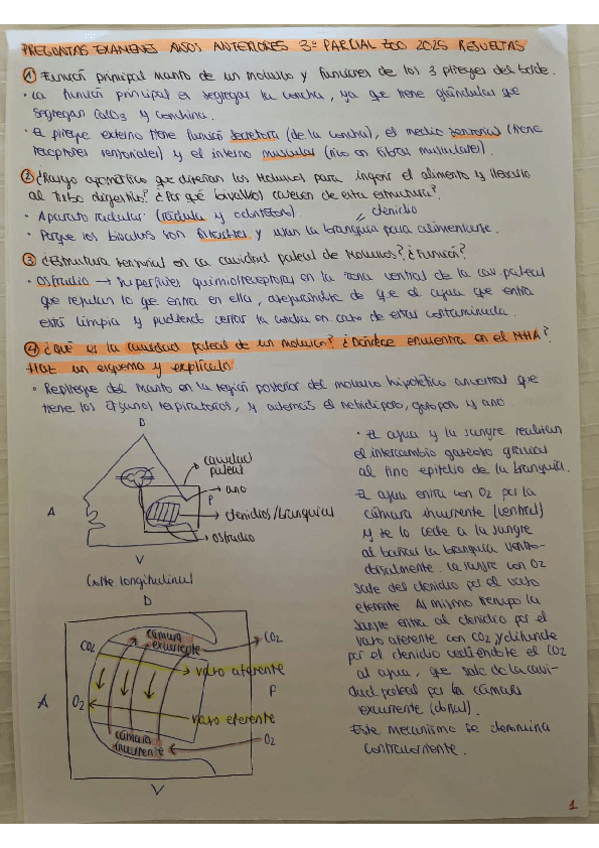 PREGUNTAS EXAMENES AÑOS ANTERIORES 3º PARCIAL ZOO 2025 RESUELTAS
① Función principal manto de un molusco y funciones de los 3 pliegues del borde.
· La función principal es segregar la concha, ya que tiene glándulas que
segregan CaCO3 y conchina.
· El pliegue externo tiene función secretora (de la concha), el medio sensorial (tiene
receptores sensoriales) y el interno muscular (rico en fibras musculares).
② ¿Rasgo apomórfico que diseñan los Moluscos para ingerir el alimento y llevarlo
al tubo digestivo? ¿Por qué bivalvos carecen de esta estructura?
· Aparato radular (rádula y odontóforo).
ctenidio
· Porque los bivalvos son filtradores y usan la branquia para alimentarse.
③ ¿Estructura sensorial en la cavidad paleal de Moluscos? ¿Función?
· Osfradio → superficies quimiorreceptoras en la zona ventral de la cav. paleal
que regulan lo que entra en ella, asegurándose de que el agua que entra
está limpia y pudiendo cerrar la concha en caso de estar contaminada.
④ ¿Qué es la cavidad paleal de un molusco? ¿Dónde se encuentra en el MHA?
Haz un esquema y explícalo
· Repliegue del manto en la región posterior del molusco hipotético ancestral que
tiene los órganos respiratorios, y además el nefridioporo, gonoporo y ano
D
cavidad
paleal
ano
P
A
ctenidios/branquias
osfradio
V
Corte longitudinal
D
cámara
exhurrente
CO2
CO2
vaso aferente
P
A
O2
vaso eferente
cámara
inhurrente
O2
V
· El agua y la sangre realizan
el intercambio gaseoso gracias
al fino epitelio de la branquia.
· El agua entra con O2 por la
cámara inhurrente (ventral)
y se lo cede a la sangre
al bañar la branquia ventro-
dorsalmente. La sangre con O2
sale del ctenidio por el vaso
eferente. Al mismo tiempo la
sangre entra al ctenidio por el
vaso aferente con CO2 y difunde
por el ctenidio cediéndole el CO2
al agua, que sale de la cavi-
dad paleal por la cámara
exhurrente (dorsal).
Este mecanismo se denomina
contracorriente.
1